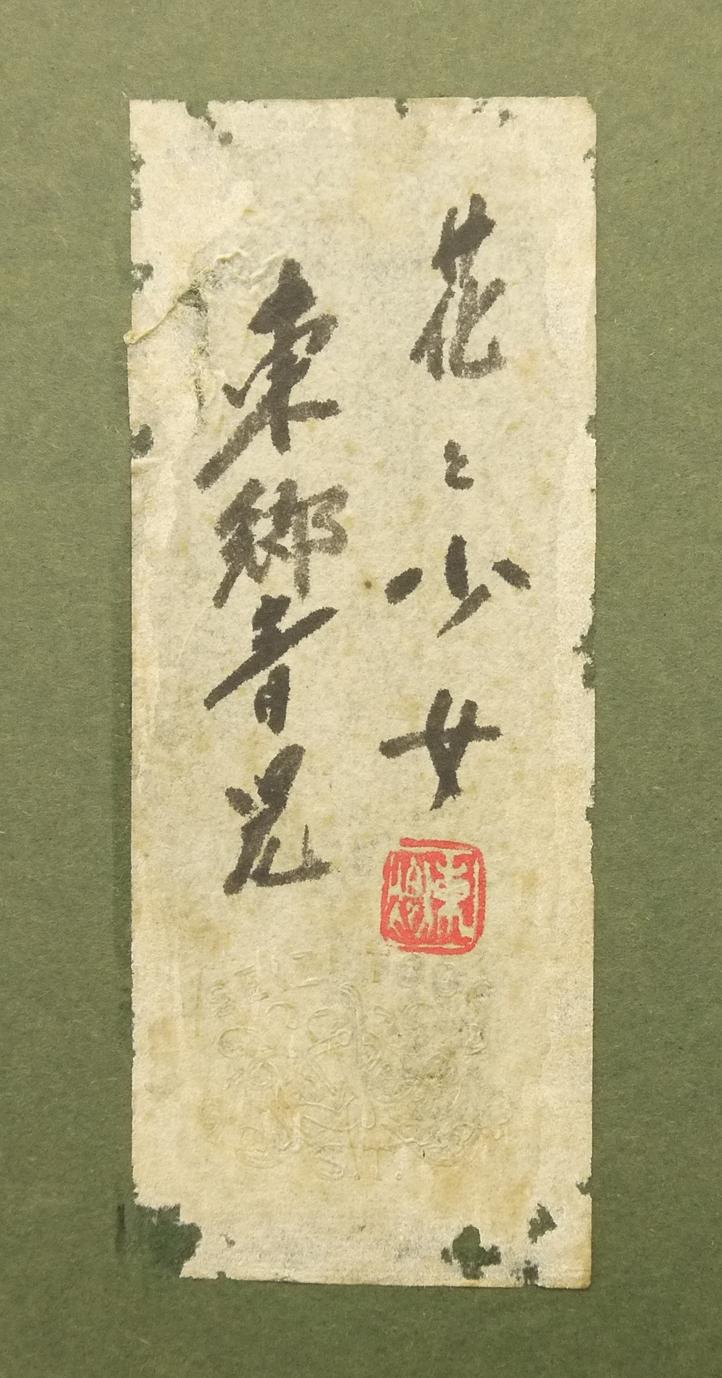 花と少女
東郷青児
東郷